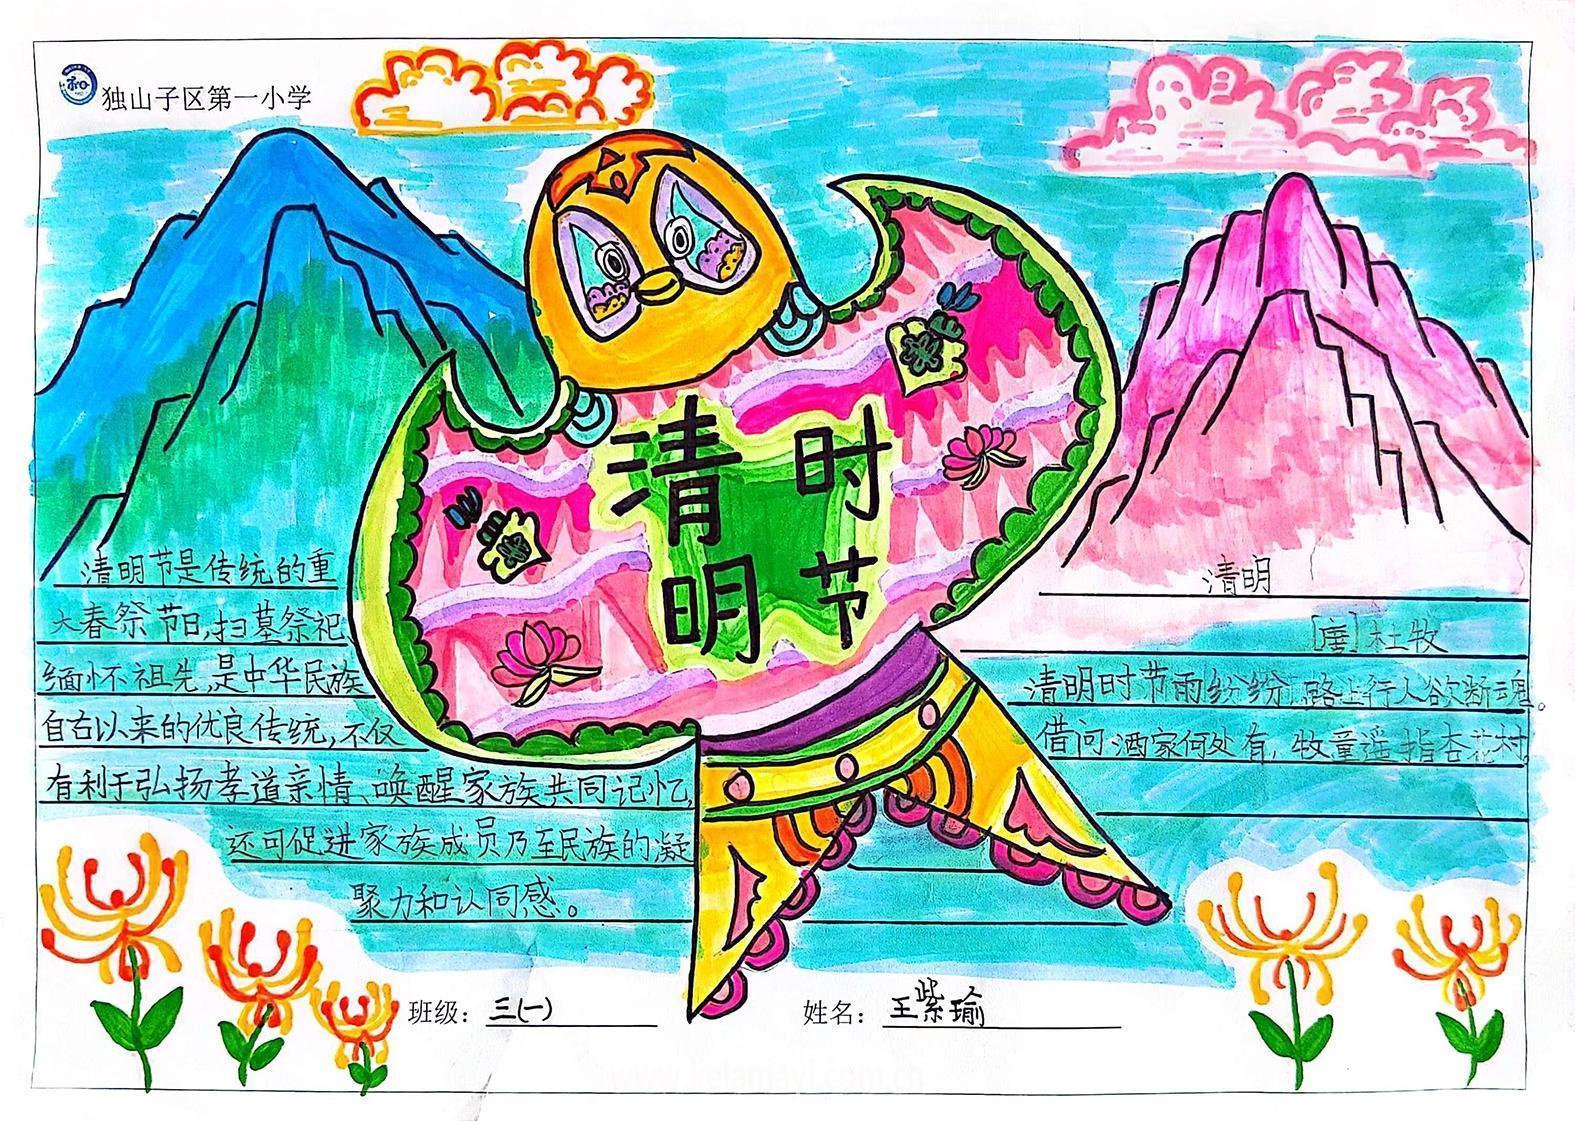 独山子区第一小学
清时
明节
清明节是传统的重
大春祭节日,扫墓祭祀
缅怀祖先,是中华民族
自古以来的优良传统,不仅
有利于弘扬孝道亲情、唤醒家族共同记忆,
还可促进家族成员乃至民族的凝
聚力和认同感。
清明
[唐]杜牧
清明时节雨纷纷,路上行人欲断魂。
借问酒家何处有,牧童遥指杏花村。
班级：三(一)
姓名：王紫瑜
www.kelamayi.com.cn